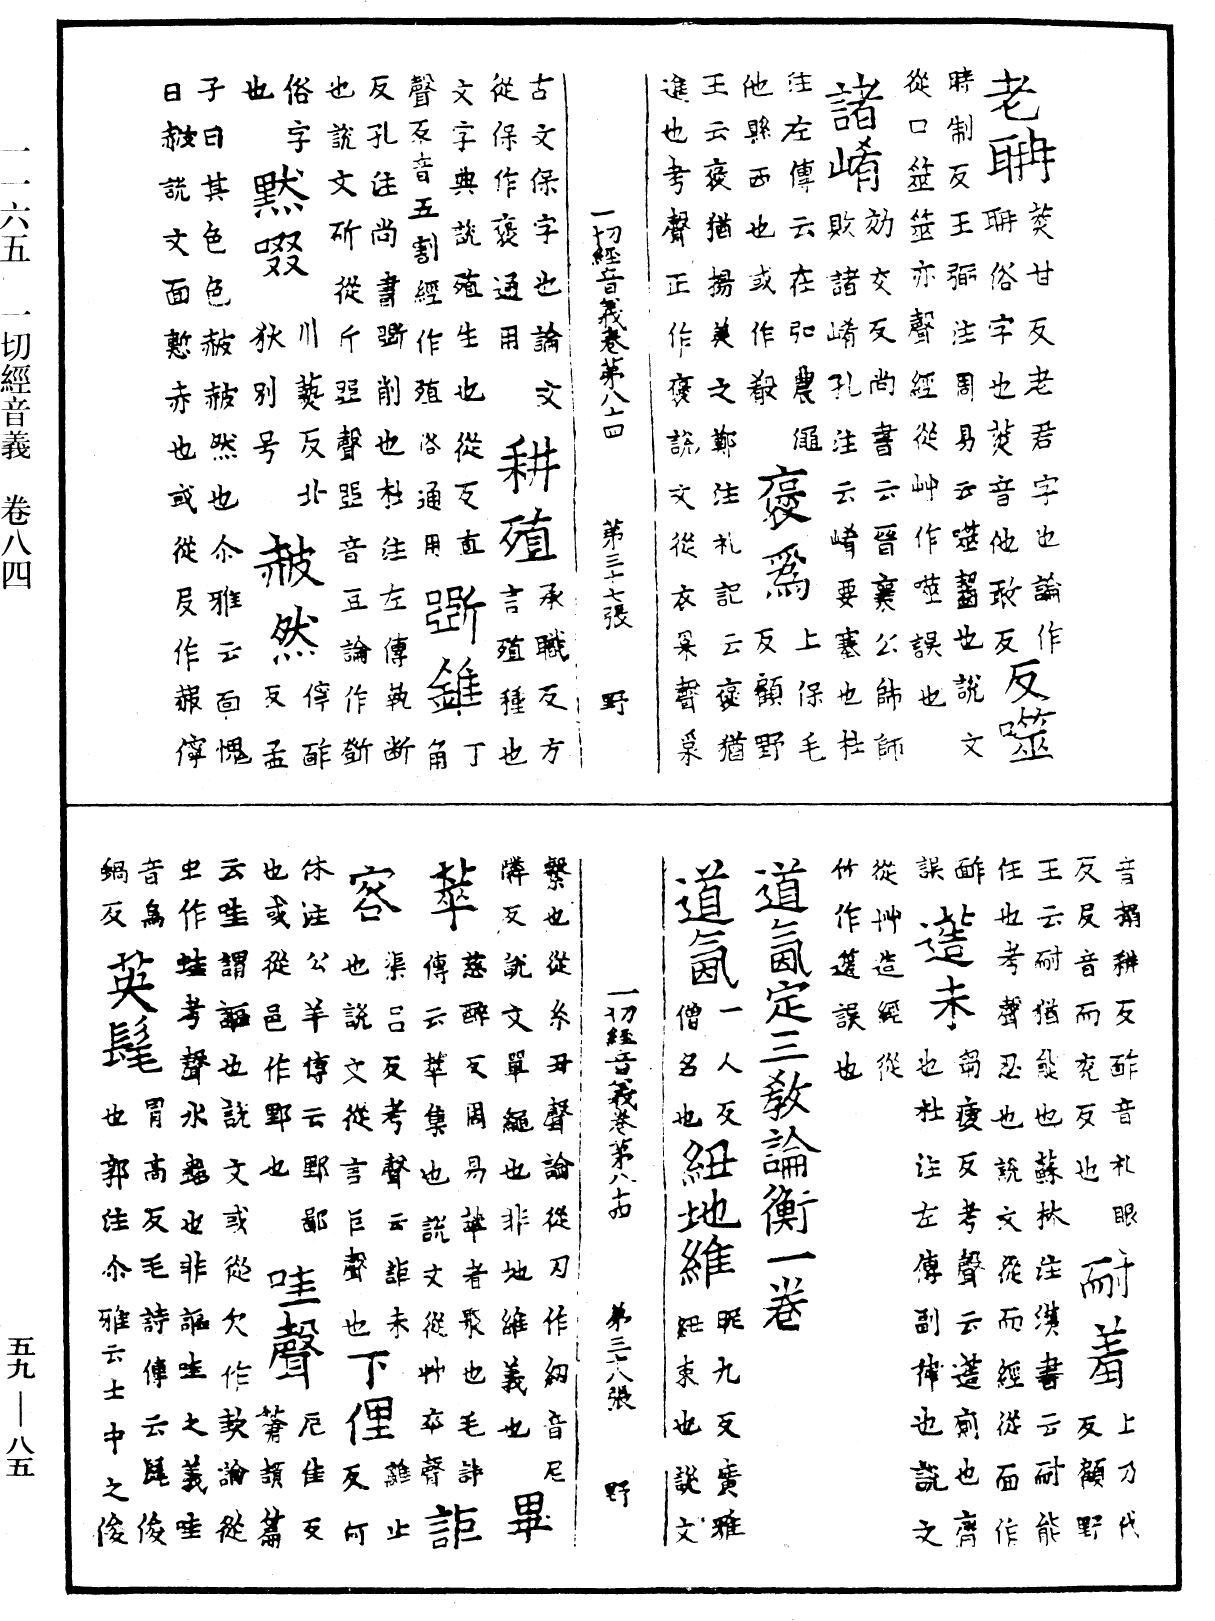 一一六五 一切經音義 卷八四
五九—八五
老聃 菼甘反老君字也論作
聃俗字也菼音他敢反 反噬
時制反王弼注周易云噬齧也說文
從口筮筮亦聲經從艸作噬誤也
諸崤 効交反尚書云晉襄公帥師
敗諸崤孔注云崤要塞也杜
注左傳云在弘農澠
他縣西也或作殽 褒爲 上保毛
反顧野
王云褒猶揚美之鄭注礼記云褒猶
進也考聲正作褒說文從衣𤓽聲𤓽
一切經音義卷第八十四 第三十七張 野
古文保字也論文
從保作褒通用 耕殖 承職反方
言殖種也
文字典說殖生也從歹直 丁
聲歹音五割經作殖俗通用 斲錐 角
反孔注尚書斲削也杜注左傳執斲
也說文斫從斤𠁁聲𠁁音豆論作斵
俗字
也 黙啜 川爇反北
狄別号 赧然 儜酢
反孟
子曰其色色赧赧然也尒雅云面愧
曰赧說文面慙赤也或從𠬝作赧儜
音搦耕反酢音札眼
反𠬝音而兖反也 耐羞 上乃代
反顧野
王云耐猶能也蘇林注漢書云耐能
任也考聲忍也說文從而經從面作
誤 簉未 芻瘦反考聲云簉劑也齊
也杜注左傳副倅也說文
從艸造經從
竹作簉誤也
道氤定三教論衡一卷
道氤 一人反
僧名也 紐地維 昵九反廣雅
紐束也說文
一切經音義卷第八十四 第三十八張 野
繫也從糸丑聲論從刀作紉音尼
隣反說文單繩也非地維義也 畢
萃 慈醉反周易萃者聚也毛詩
傳云萃集也說文從艸卒聲 詎
容 渠呂反考聲云詎未
也說文從言巨聲也 下俚 離止
反何
休注公羊傳云野鄙
也或從邑作野也 哇聲 厄佳反
蒼頡篇
云哇謂謳也說文或從欠作㰪論從
虫作蛙考聲水蟲也非謳哇之義哇
音爲
蝸反 英髦 冐高反毛詩傳云髦俊
也郭注尒雅云士中之俊